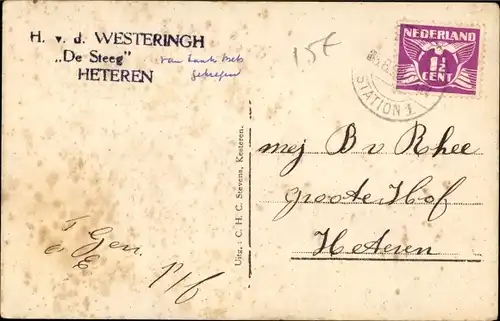 H. v. d. WESTERINGH
„De Steeg"
HETEREN
van
gekregen
15€
NEDERLAND
1½
CENT
STATION
Uitg.: C. H. C. Stevens, Kesteren.
mej B v Rhee
groote Hof
Heteren
Gen.
p/f